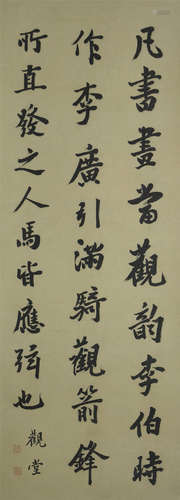 凡書畫當觀韻李伯時
作李廣引滿騎觀箭鋒
所直發之人馬皆應弦也
觀堂